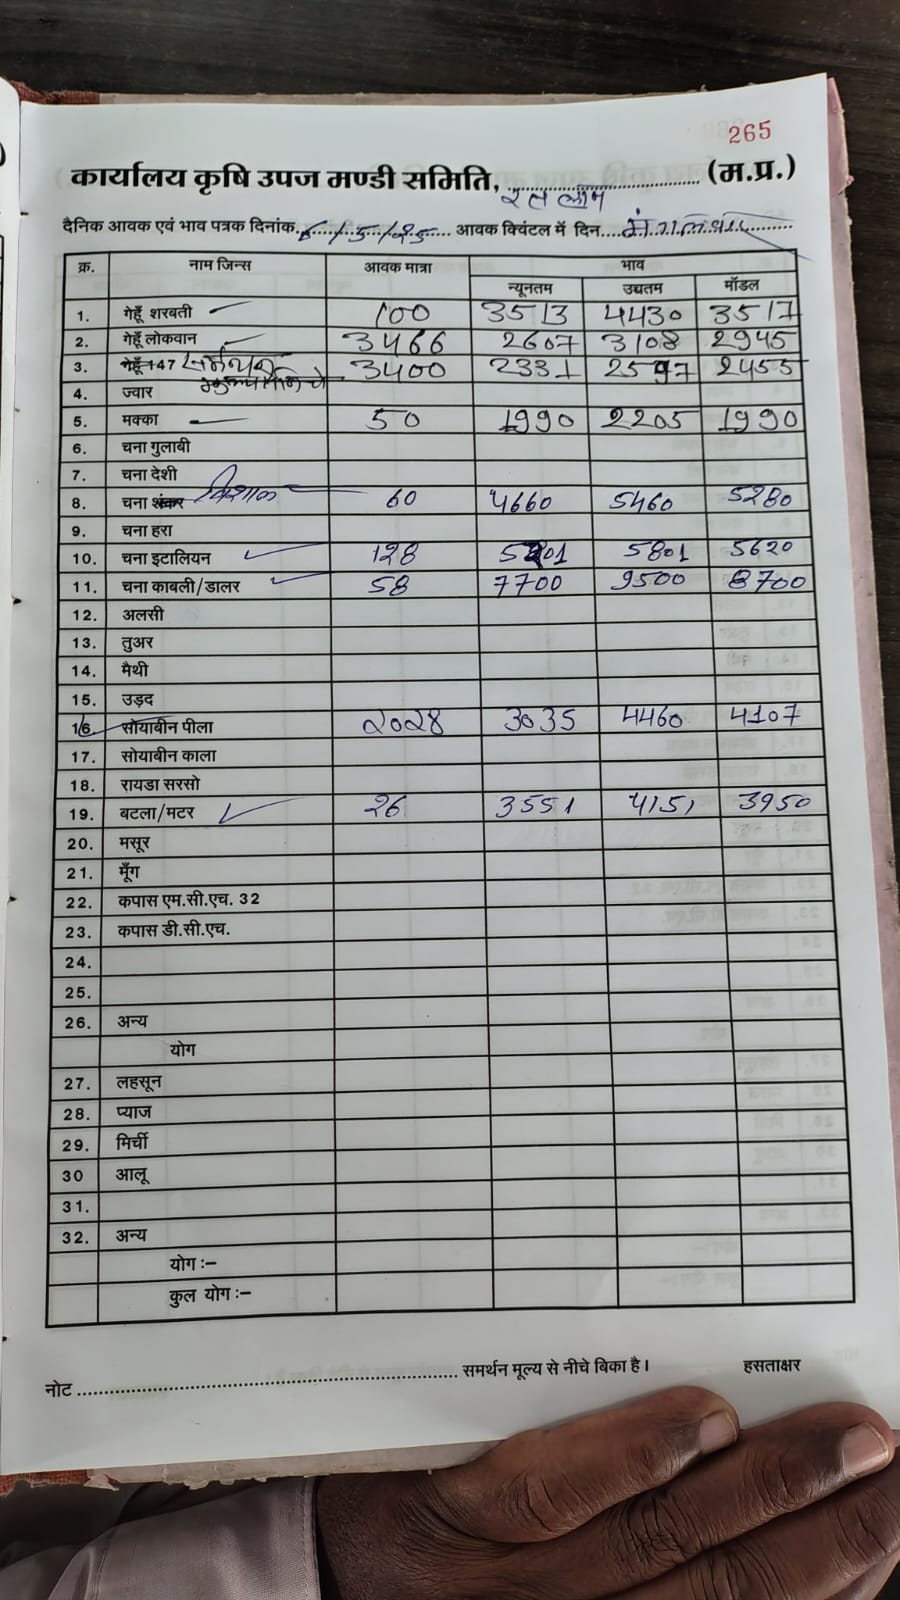 265
कार्यालय कृषि उपज मण्डी समिति, रतलाम (म.प्र.)
दैनिक आवक एवं भाव पत्रक दिनांक. 6/5/25 आवक क्विंटल में दिन.... मंगलवार
क्र. नाम जिन्स आवक मात्रा भाव
न्यूनतम उच्चतम मॉडल
1. गेहूँ शरबती 100 3513 4430 3517
2. गेहूँ लोकवान 3466 2607 3108 2945
3. गेहूँ 147 3400 2331 2597 2455
4. ज्वार
5. मक्का 50 1990 2205 1990
6. चना गुलाबी
7. चना देशी
8. चना शंकर विशाल 60 4660 5460 5280
9. चना हरा
10. चना इटालियन 128 5201 5801 5620
11. चना काबली/डालर 58 7700 9500 8700
12. अलसी
13. तुअर
14. मैथी
15. उड़द
16. सोयाबीन पीला 2028 3035 4460 4107
17. सोयाबीन काला
18. रायडा सरसो
19. बटला/मटर 26 3551 4151 3950
20. मसूर
21. मूँग
22. कपास एम.सी.एच. 32
23. कपास डी.सी.एच.
24.
25.
26. अन्य
योग
27. लहसून
28. प्याज
29. मिर्ची
30 आलू
31.
32. अन्य
योग :–
कुल योग :–
नोट ........ समर्थन मूल्य से नीचे बिका है। हसताक्षर